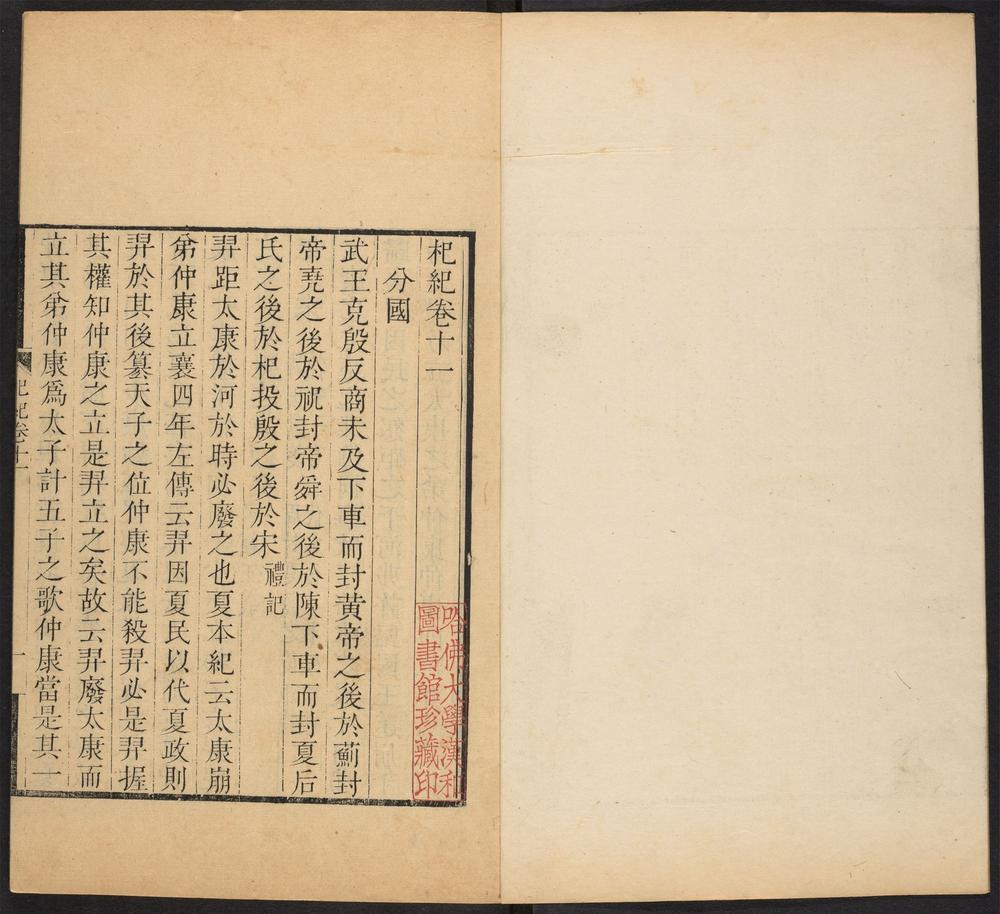 杞紀卷十一
分國
武王克殷反商未及下車而封黄帝之後於薊封
帝堯之後於祝封帝舜之後於陳下車而封夏后
氏之後於杞投殷之後於宋禮記
羿距太康於河於時必廢之也夏本紀云太康崩
弟仲康立襄四年左傳云羿因夏民以代夏政則
羿於其後篡天子之位仲康不能殺羿必是羿握
其權知仲康之立是羿立之矣故云羿廢太康而
立其弟仲康爲太子計五子之歌仲康當是其一
杞紀卷十一
一
哈佛大學漢和
圖書館珍藏印